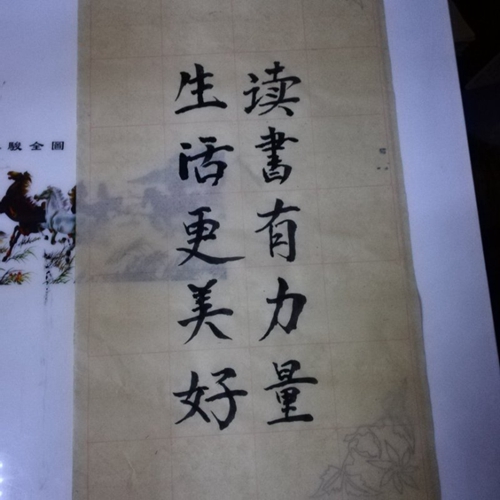 读書有力量
生活更美好
駿全圖